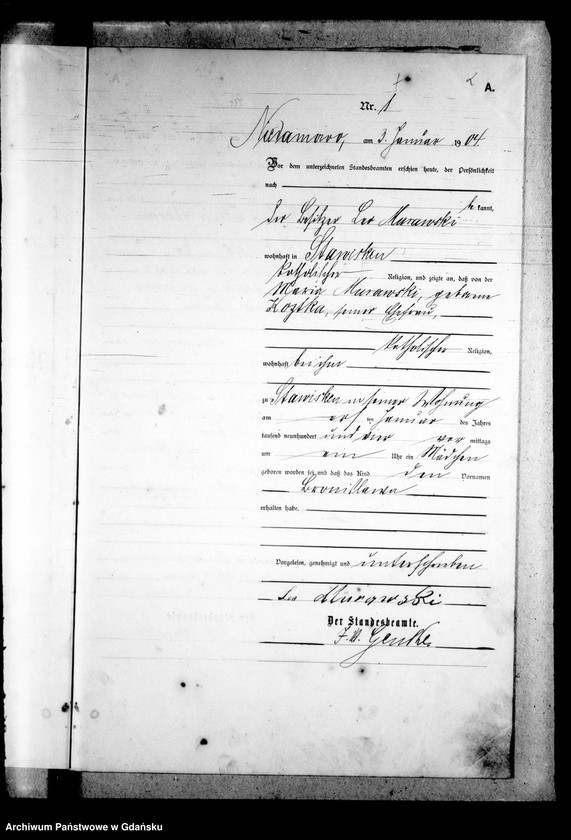 A.
Nr. 1
Niedamowo, am 3. Januar 1904.
Vor dem unterzeichneten Standesbeamten erschien heute, der Persönlichkeit
nach
be kannt,
der Besitzer Leo Murawski
wohnhaft in Stawisken
katholischer Religion, und zeigte an, daß von der
Maria Murawski, geborene
Koztka, seiner Ehefrau,
katholischer Religion,
wohnhaft bei ihm
zu Stawisken in seiner Wohnung
am ersten Januar des Jahres
tausend neunhundert und vier vor mittags
um ein Uhr ein Mädchen
geboren worden sei und daß das Kind den Vornamen
Bronislawa
erhalten habe.
Vorgelesen, genehmigt und unterschrieben
Leo Murawski
Der Standesbeamte.
Archiwum Państwowe w Gdańsku